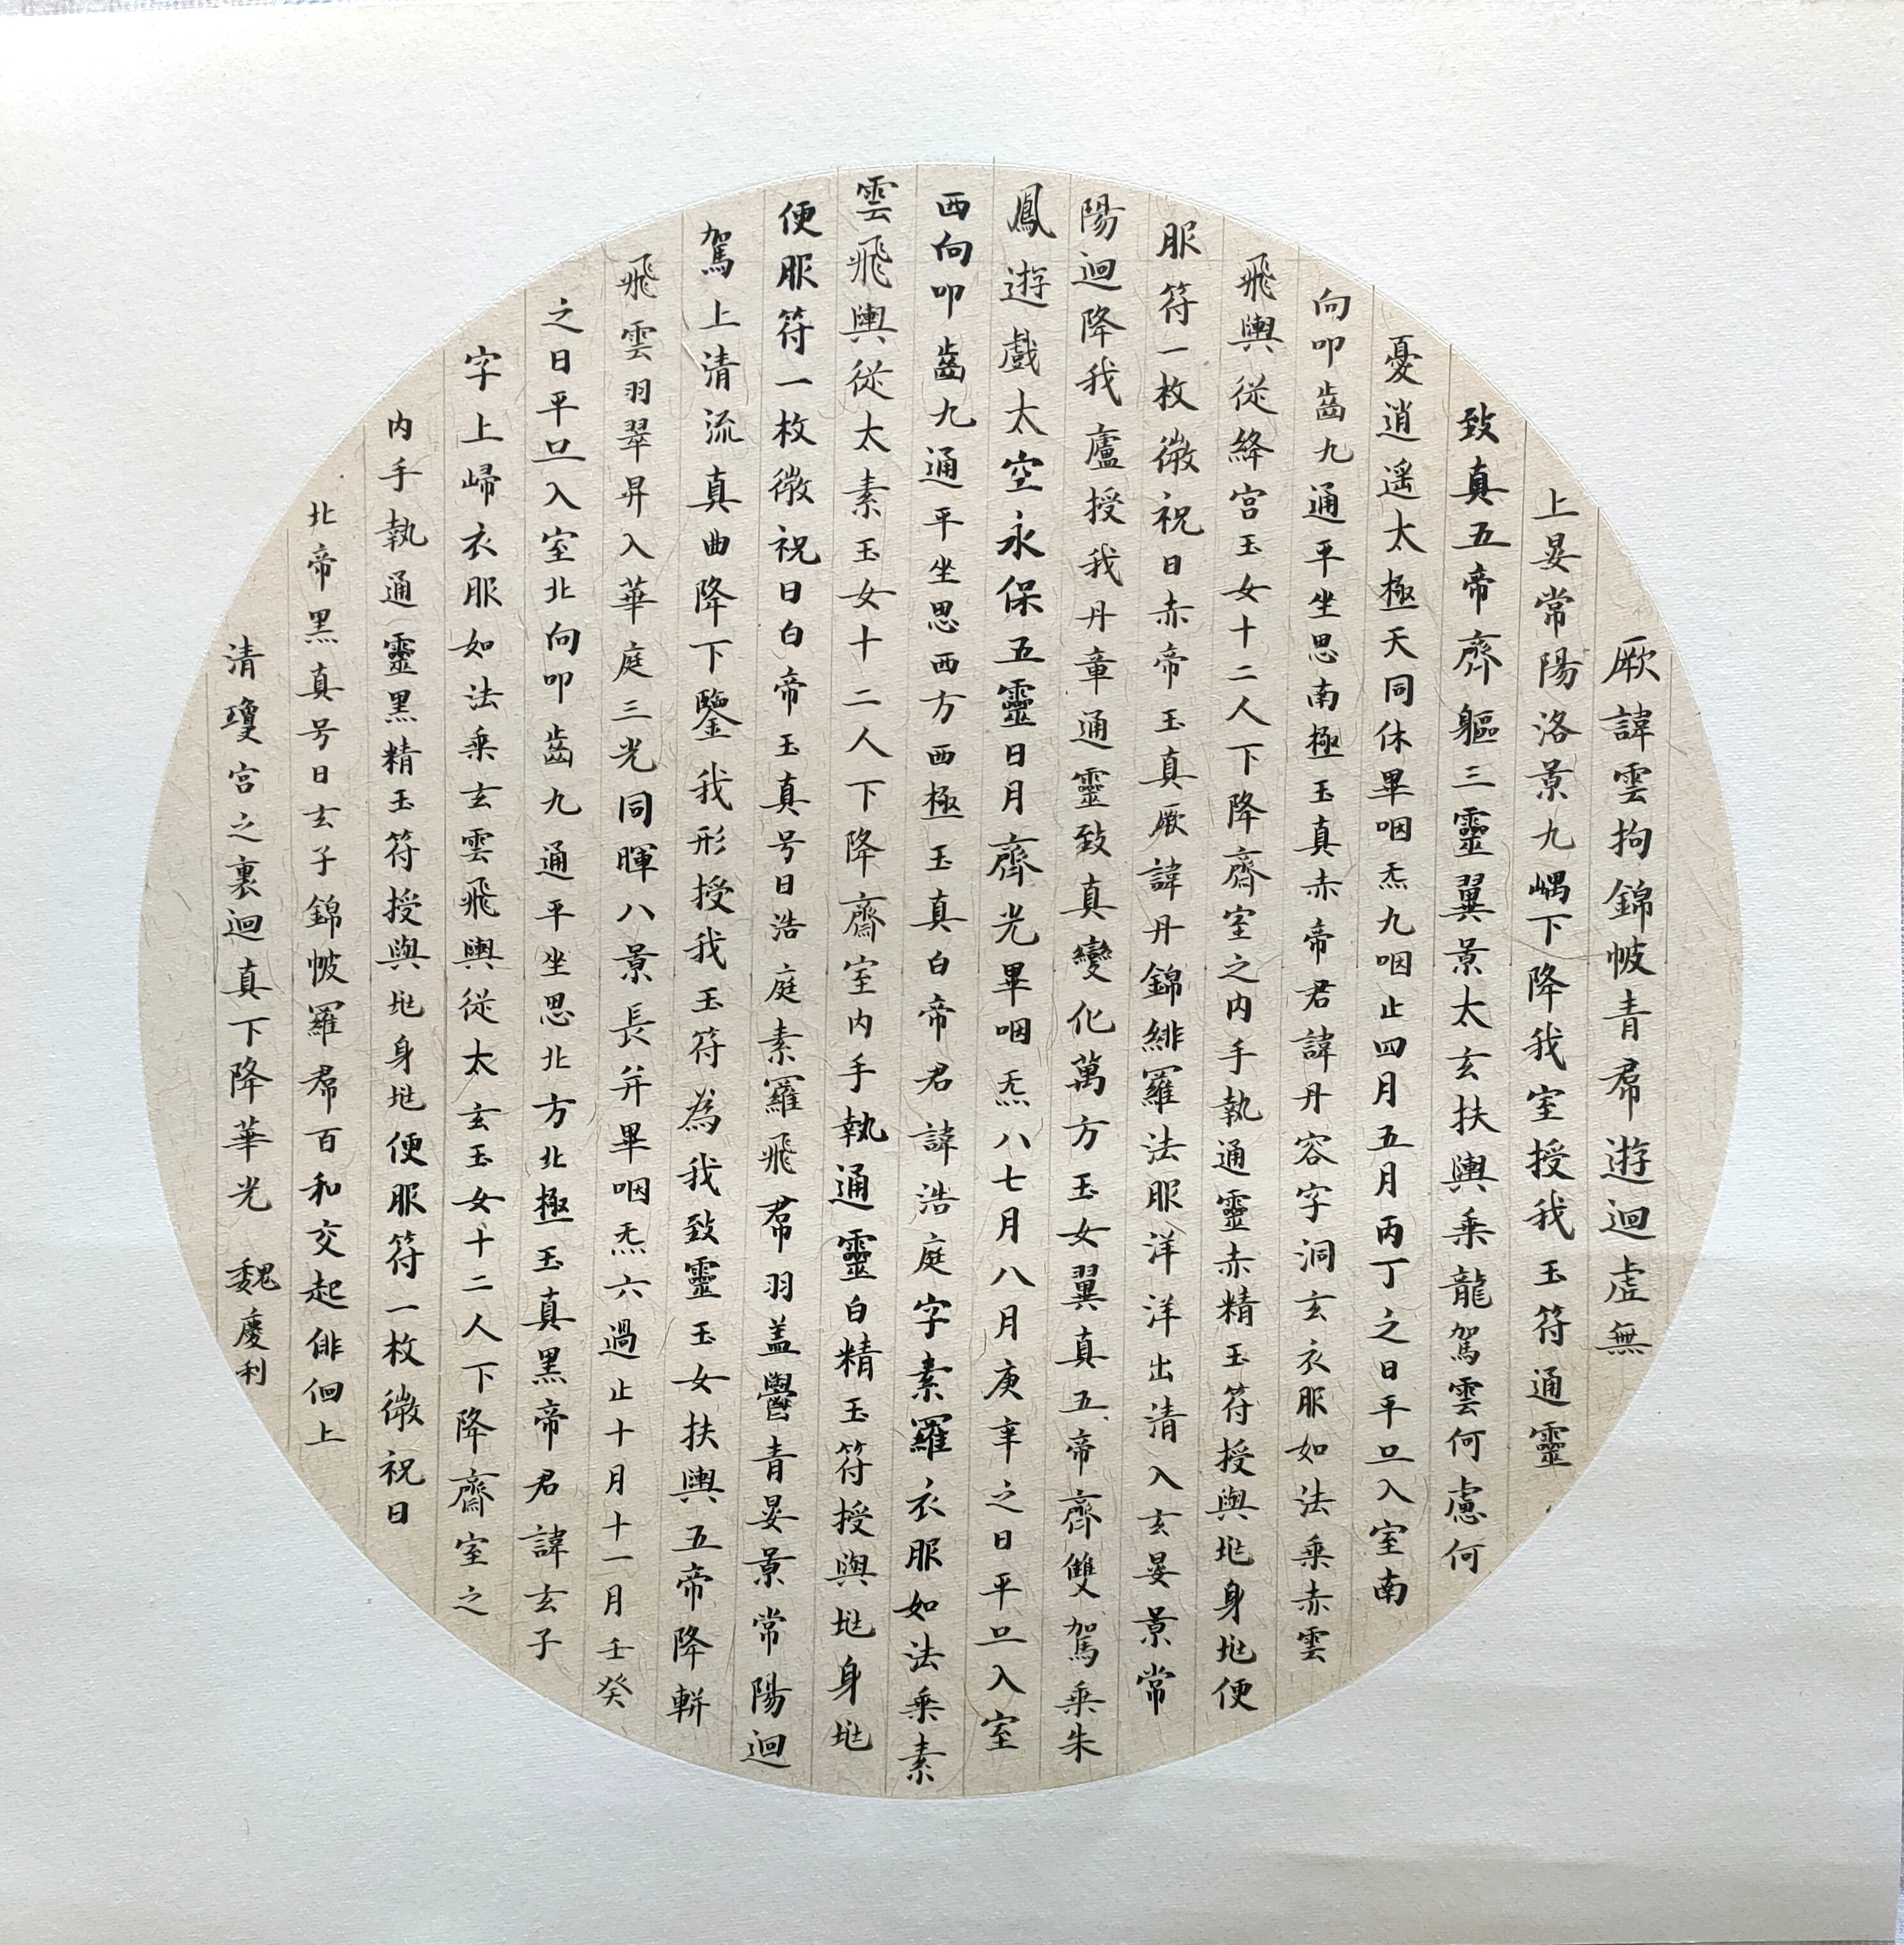 厥諱雲拘錦帔青帬遊迴虛無
上晏常陽洛景九嵎下降我室授我玉符通靈
致真五帝齊軀三靈翼景太玄扶輿乘龍駕雲何慮何
憂逍遥太極天同休畢咽炁九咽止四月五月丙丁之日平旦入室南
向叩齒九通平坐思南極玉真赤帝君諱丹容字洞玄衣服如法乘赤雲
飛輿從絳宮玉女十二人下降齋室之内手執通靈赤精玉符授與兆身兆便
服符一枚微祝日赤帝玉真厥諱丹錦緋羅法服洋洋出清入玄晏景常
陽迴降我廬授我丹章通靈致真變化萬方玉女翼真五帝齊雙駕乘朱
鳳遊戲太空永保五靈日月齊光畢咽炁八七月八月庚辛之日平旦入室
西向叩齒九通平坐思西方西極玉真白帝君諱浩庭字素羅衣服如法乘素
雲飛輿從太素玉女十二人下降齋室内手執通靈白精玉符授與兆身兆
便服符一枚微祝日白帝玉真号日浩庭素羅飛帬羽盖鬱青晏景常陽迴
駕上清流真曲降下鑒我形授我玉符為我致靈玉女扶輿五帝降軿
飛雲羽翠昇入華庭三光同暉八景長并畢咽炁六過止十月十一月壬癸
之日平旦入室北向叩齒九通平坐思北方北極玉真黑帝君諱玄子
字上歸衣服如法乘玄雲飛輿從太玄玉女十二人下降齋室之
内手執通靈黑精玉符授與兆身兆便服符一枚微祝日
北帝黑真号日玄子錦帔羅帬百和交起俳佪上
清瓊宮之裏迴真下降華光 魏慶利